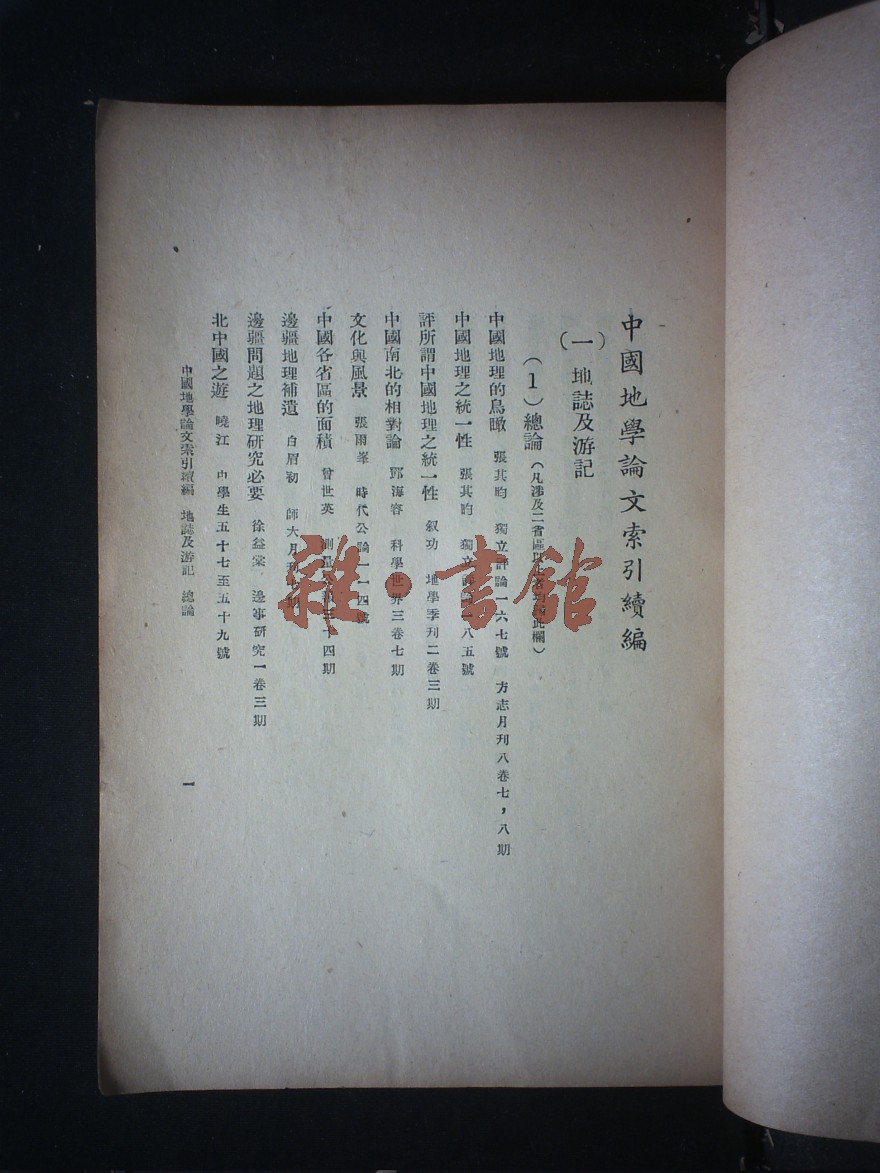 中國地學論文索引續編
(一) 地誌及游記
(1) 總論 (凡涉及二省區以上者均歸此欄)
中國地理的鳥瞰 張其昀 獨立評論一六七號 方志月刊八卷七,八期
中國地理之統一性 張其昀 獨立評論一八五號
評所謂中國地理之統一性 叙功 地學季刊二卷三期
中國南北的相對論 鄧海容 科學世界三卷七期
文化與風景 張雨峯 時代公論一一四號
中國各省區的面積 曾世英 測量 十四期
邊疆地理補遺 白眉初 師大月刊 期
邊疆問題之地理研究必要 徐益棠 邊事研究一卷三期
北中國之遊 曉江 中學生五十七至五十九號
中國地學論文索引續編 地誌及游記 總論
一
雜·書館